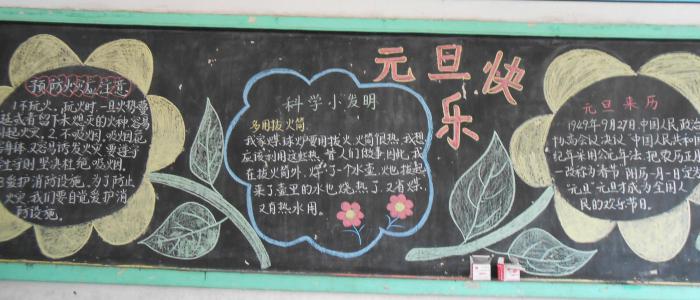 预防火灾注意
1.不玩火。玩火时一旦火势蔓
延或者留下未熄灭的火种容易
引起火灾。2.不吸烟。吸烟危
身体又容易诱发火灾
坚决杜绝吸烟。
爱护消防设施。为了防止
火灾我们要自觉爱护消
防设施。
科学小发明
多用拔火筒
我家煤球炉要用拔火筒很热,我想
应该利用这些热
在拔火筒外,焊了一个水壶,火也拔起
来了壶里的水也烧热了.又有煤
又有热水用。
元旦快
乐
元旦来历
1949年9月27日,中国人民政治
协商会议决议"中国人民共和国
纪年采用公元年法,把农历正月
一改称为春节 阳历一月一日定为
"元旦"元旦才成为全国人
民的欢乐节日。